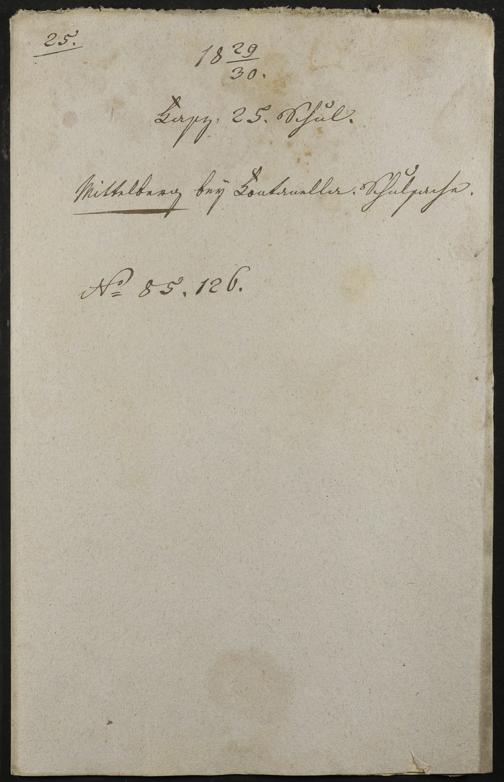 25.
18 29/30.
Fasz. 25. Schul.
Mittelberg bey Fontanella. Schulsache.
No 85. 126.